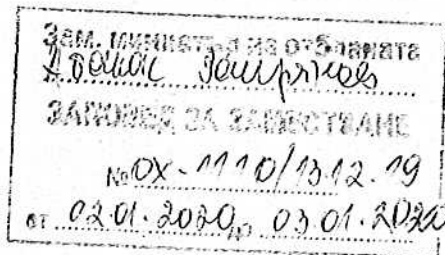 Зам. министър на отбраната
Атанас Запрянов
ЗАПОВЕД ЗА ЗАМЕСТВАНЕ
№ ОХ-1110/13.12.19
от 02.01.2020 до 03.01.2020